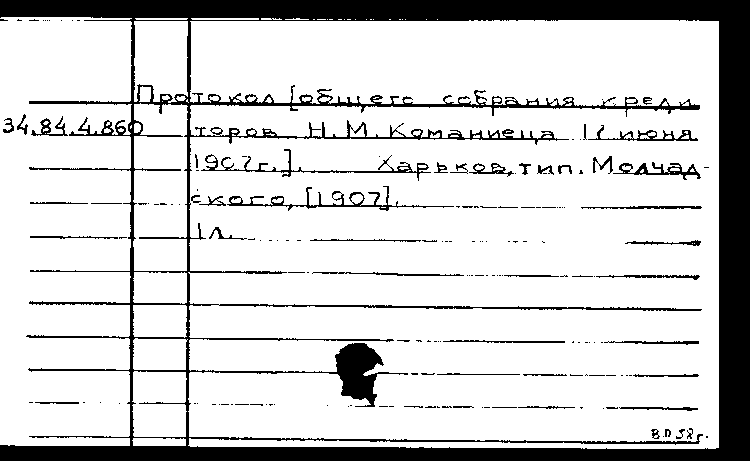 Протокол [общего собрания креди
34.84.4.860 торов Н. М. Команиеца 17 июня
1907г.]. Харьков, тип. Молчад-
ского, [1907].
1л.
В.П 58г.